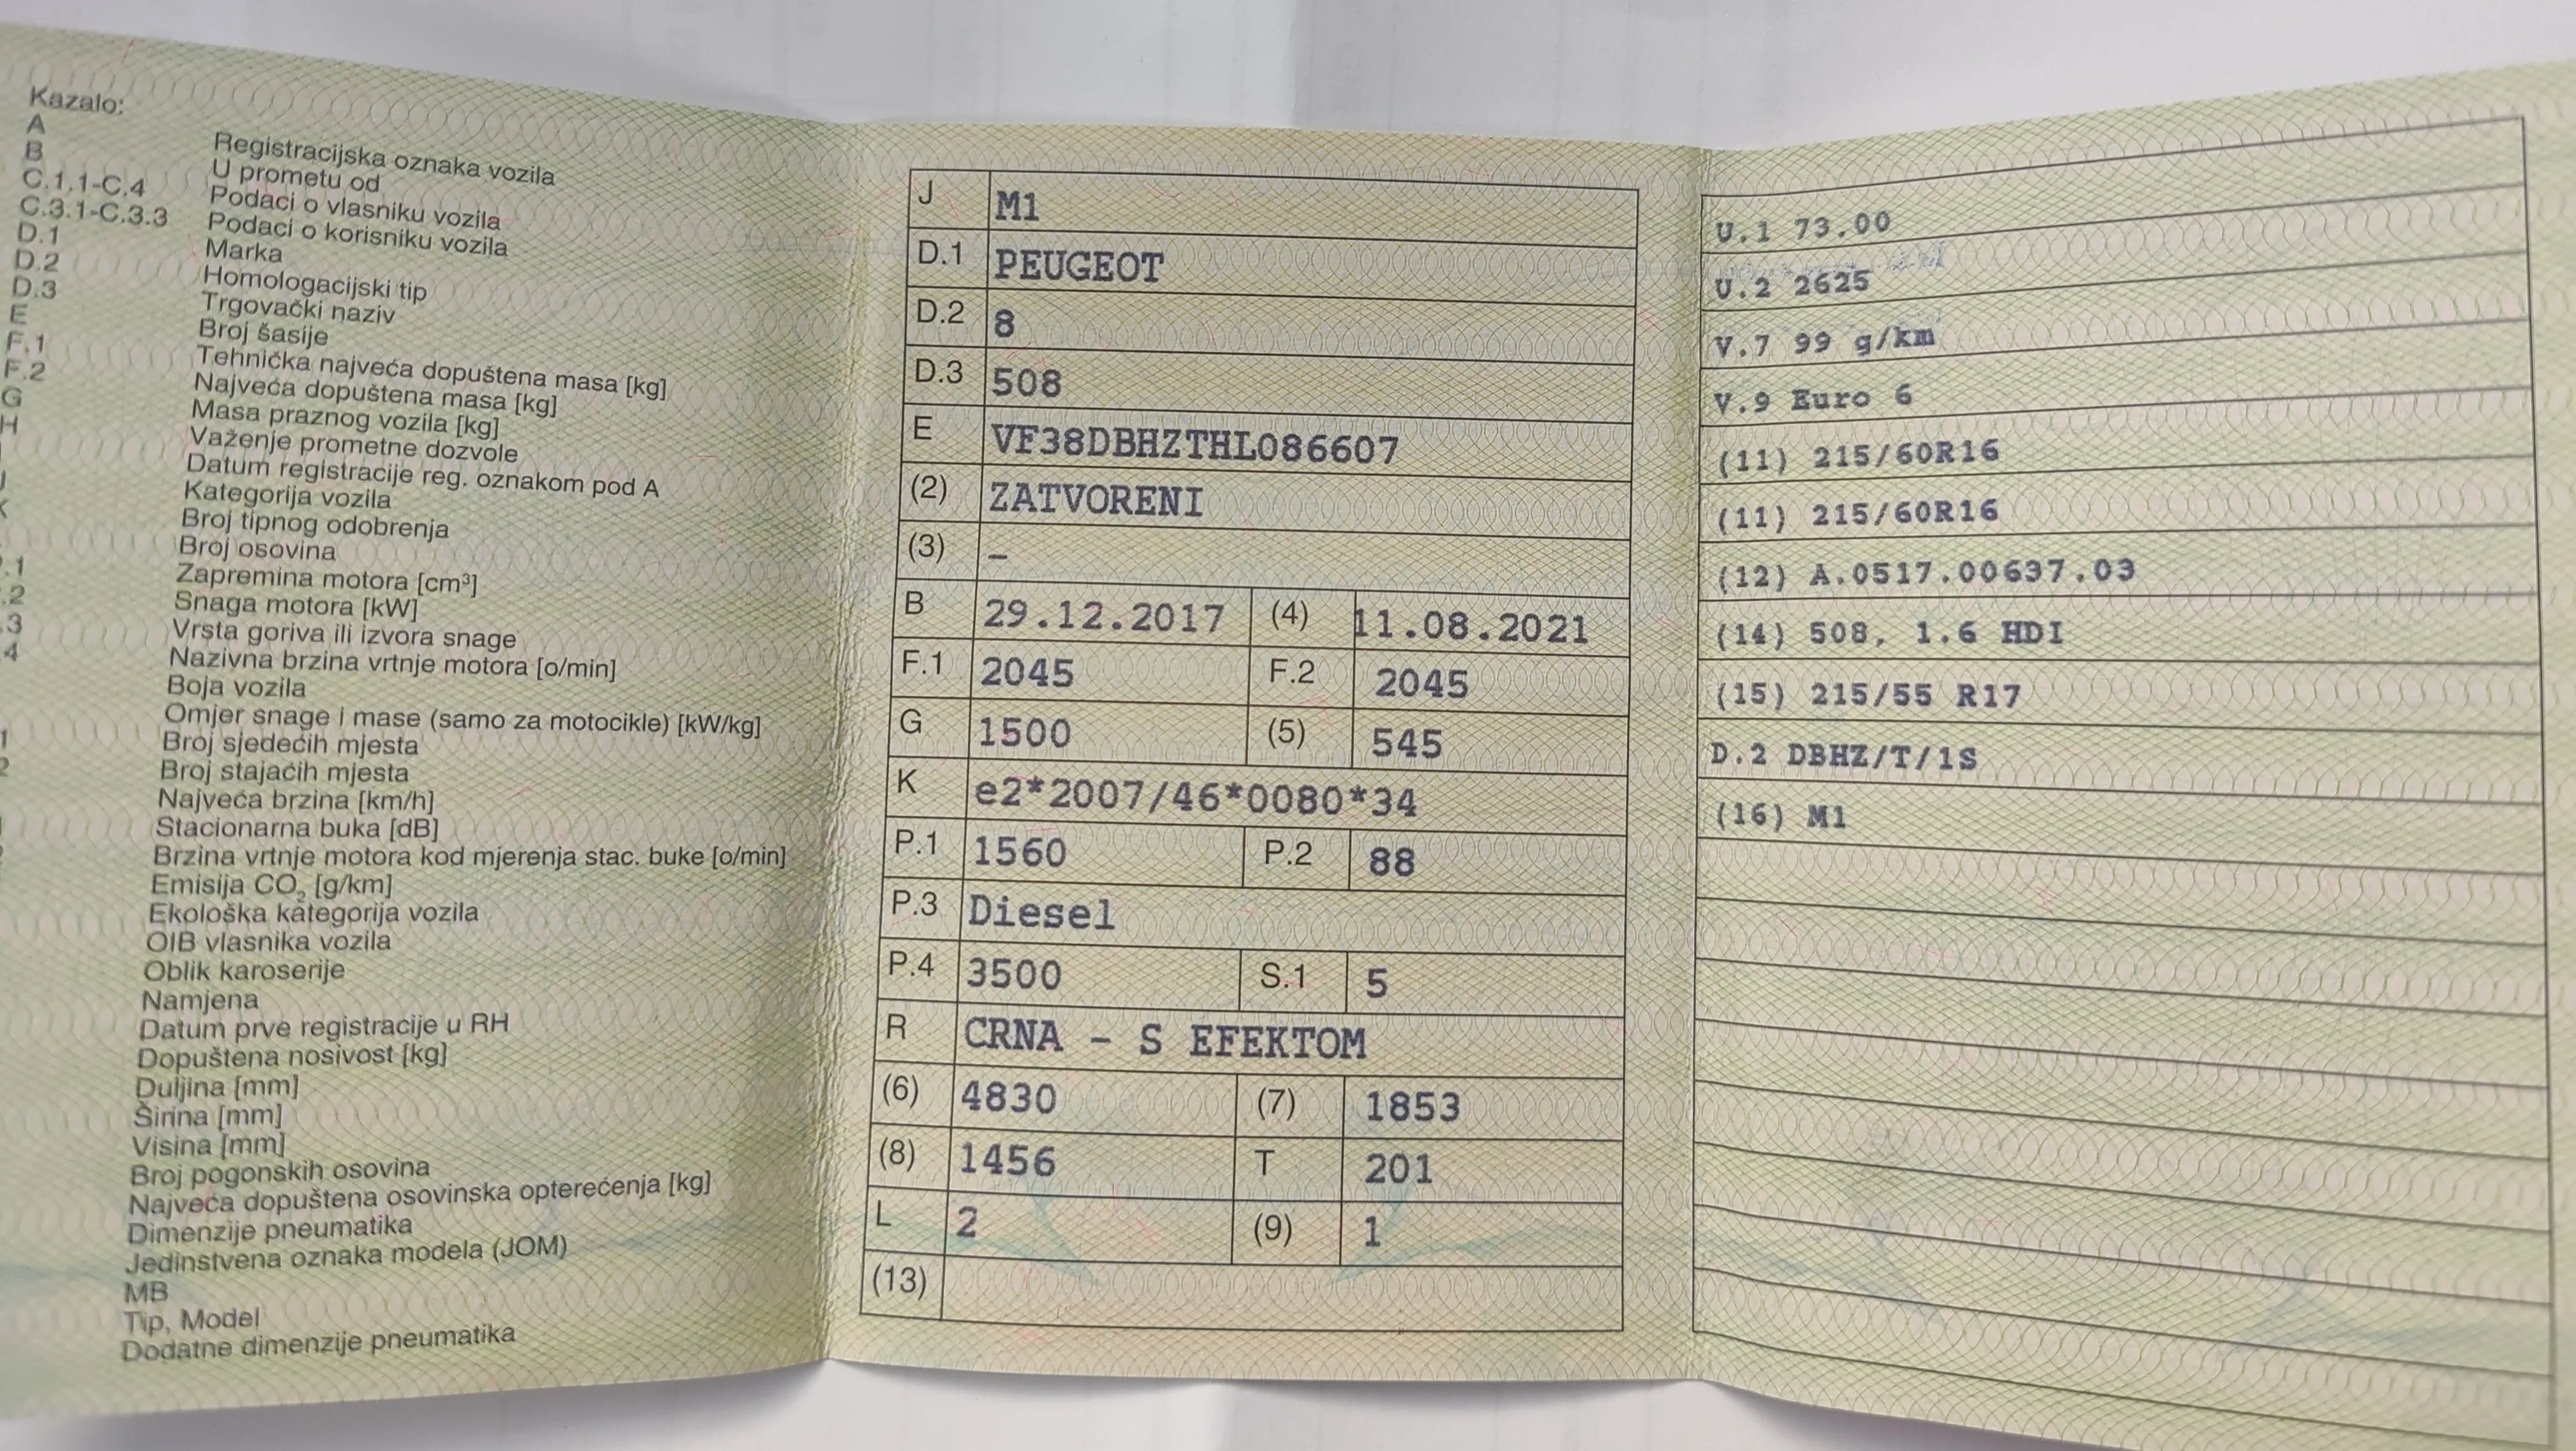 Kazalo:
A Registracijska oznaka vozila
B U prometu od
C.1.1-C.4 Podaci o vlasniku vozila
C.3.1-C.3.3 Podaci o korisniku vozila
D.1 Marka
D.2 Homologacijski tip
D.3 Trgovački naziv
E Broj šasije
F.1 Tehnička najveća dopuštena masa [kg]
F.2 Najveća dopuštena masa [kg]
G Masa praznog vozila [kg]
H Važenje prometne dozvole
Datum registracije reg. oznakom pod A
J Kategorija vozila
K Broj tipnog odobrenja
Broj osovina
.1 Zapremina motora [cm³]
.2 Snaga motora [kW]
.3 Vrsta goriva ili izvora snage
4 Nazivna brzina vrtnje motora [o/min]
Boja vozila
Omjer snage i mase (samo za motocikle) [kW/kg]
1 Broj sjedećih mjesta
2 Broj stajaćih mjesta
Najveća brzina [km/h]
Stacionarna buka [dB]
Brzina vrtnje motora kod mjerenja stac. buke [o/min]
Emisija CO₂ [g/km]
Ekološka kategorija vozila
OIB vlasnika vozila
Oblik karoserije
Namjena
Datum prve registracije u RH
Dopuštena nosivost [kg]
Duljina [mm]
Širina [mm]
Visina [mm]
Broj pogonskih osovina
Najveća dopuštena osovinska opterećenja [kg]
Dimenzije pneumatika
Jedinstvena oznaka modela (JOM)
MB
Tip, Model
Dodatne dimenzije pneumatika
J M1
D.1 PEUGEOT
D.2 8
D.3 508
E VF38DBHZTHL086607
(2) ZATVORENI
(3) –
B 29.12.2017 (4) 11.08.2021
F.1 2045 F.2 2045
G 1500 (5) 545
K e2*2007/46*0080*34
P.1 1560 P.2 88
P.3 Diesel
P.4 3500 S.1 5
R CRNA - S EFEKTOM
(6) 4830 (7) 1853
(8) 1456 T 201
L 2 (9) 1
(13)
U.1 73.00
U.2 2625
V.7 99 g/km
V.9 Euro 6
(11) 215/60R16
(11) 215/60R16
(12) A.0517.00637.03
(14) 508, 1.6 HDI
(15) 215/55 R17
D.2 DBHZ/T/1S
(16) M1